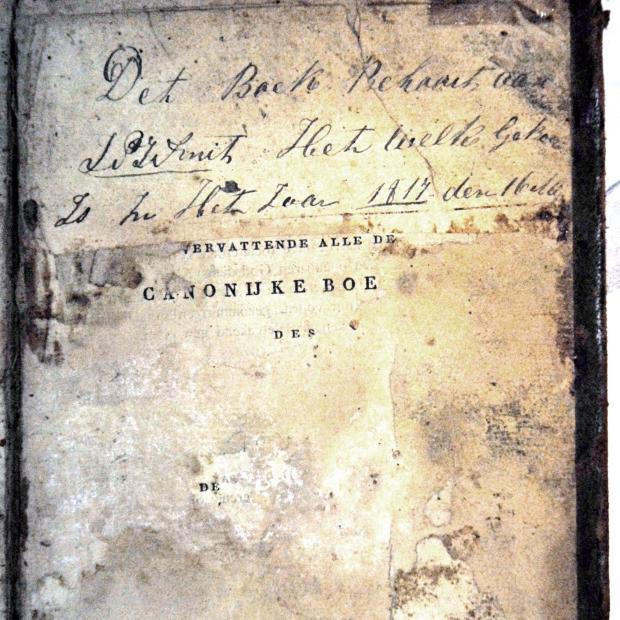 Det Boek Behoort aan
J P J Smit Het Welk Geko
Is In Het Jaar 1817 den 16
VERVATTENDE ALLE DE
CANONIJKE BOE
DES
DE